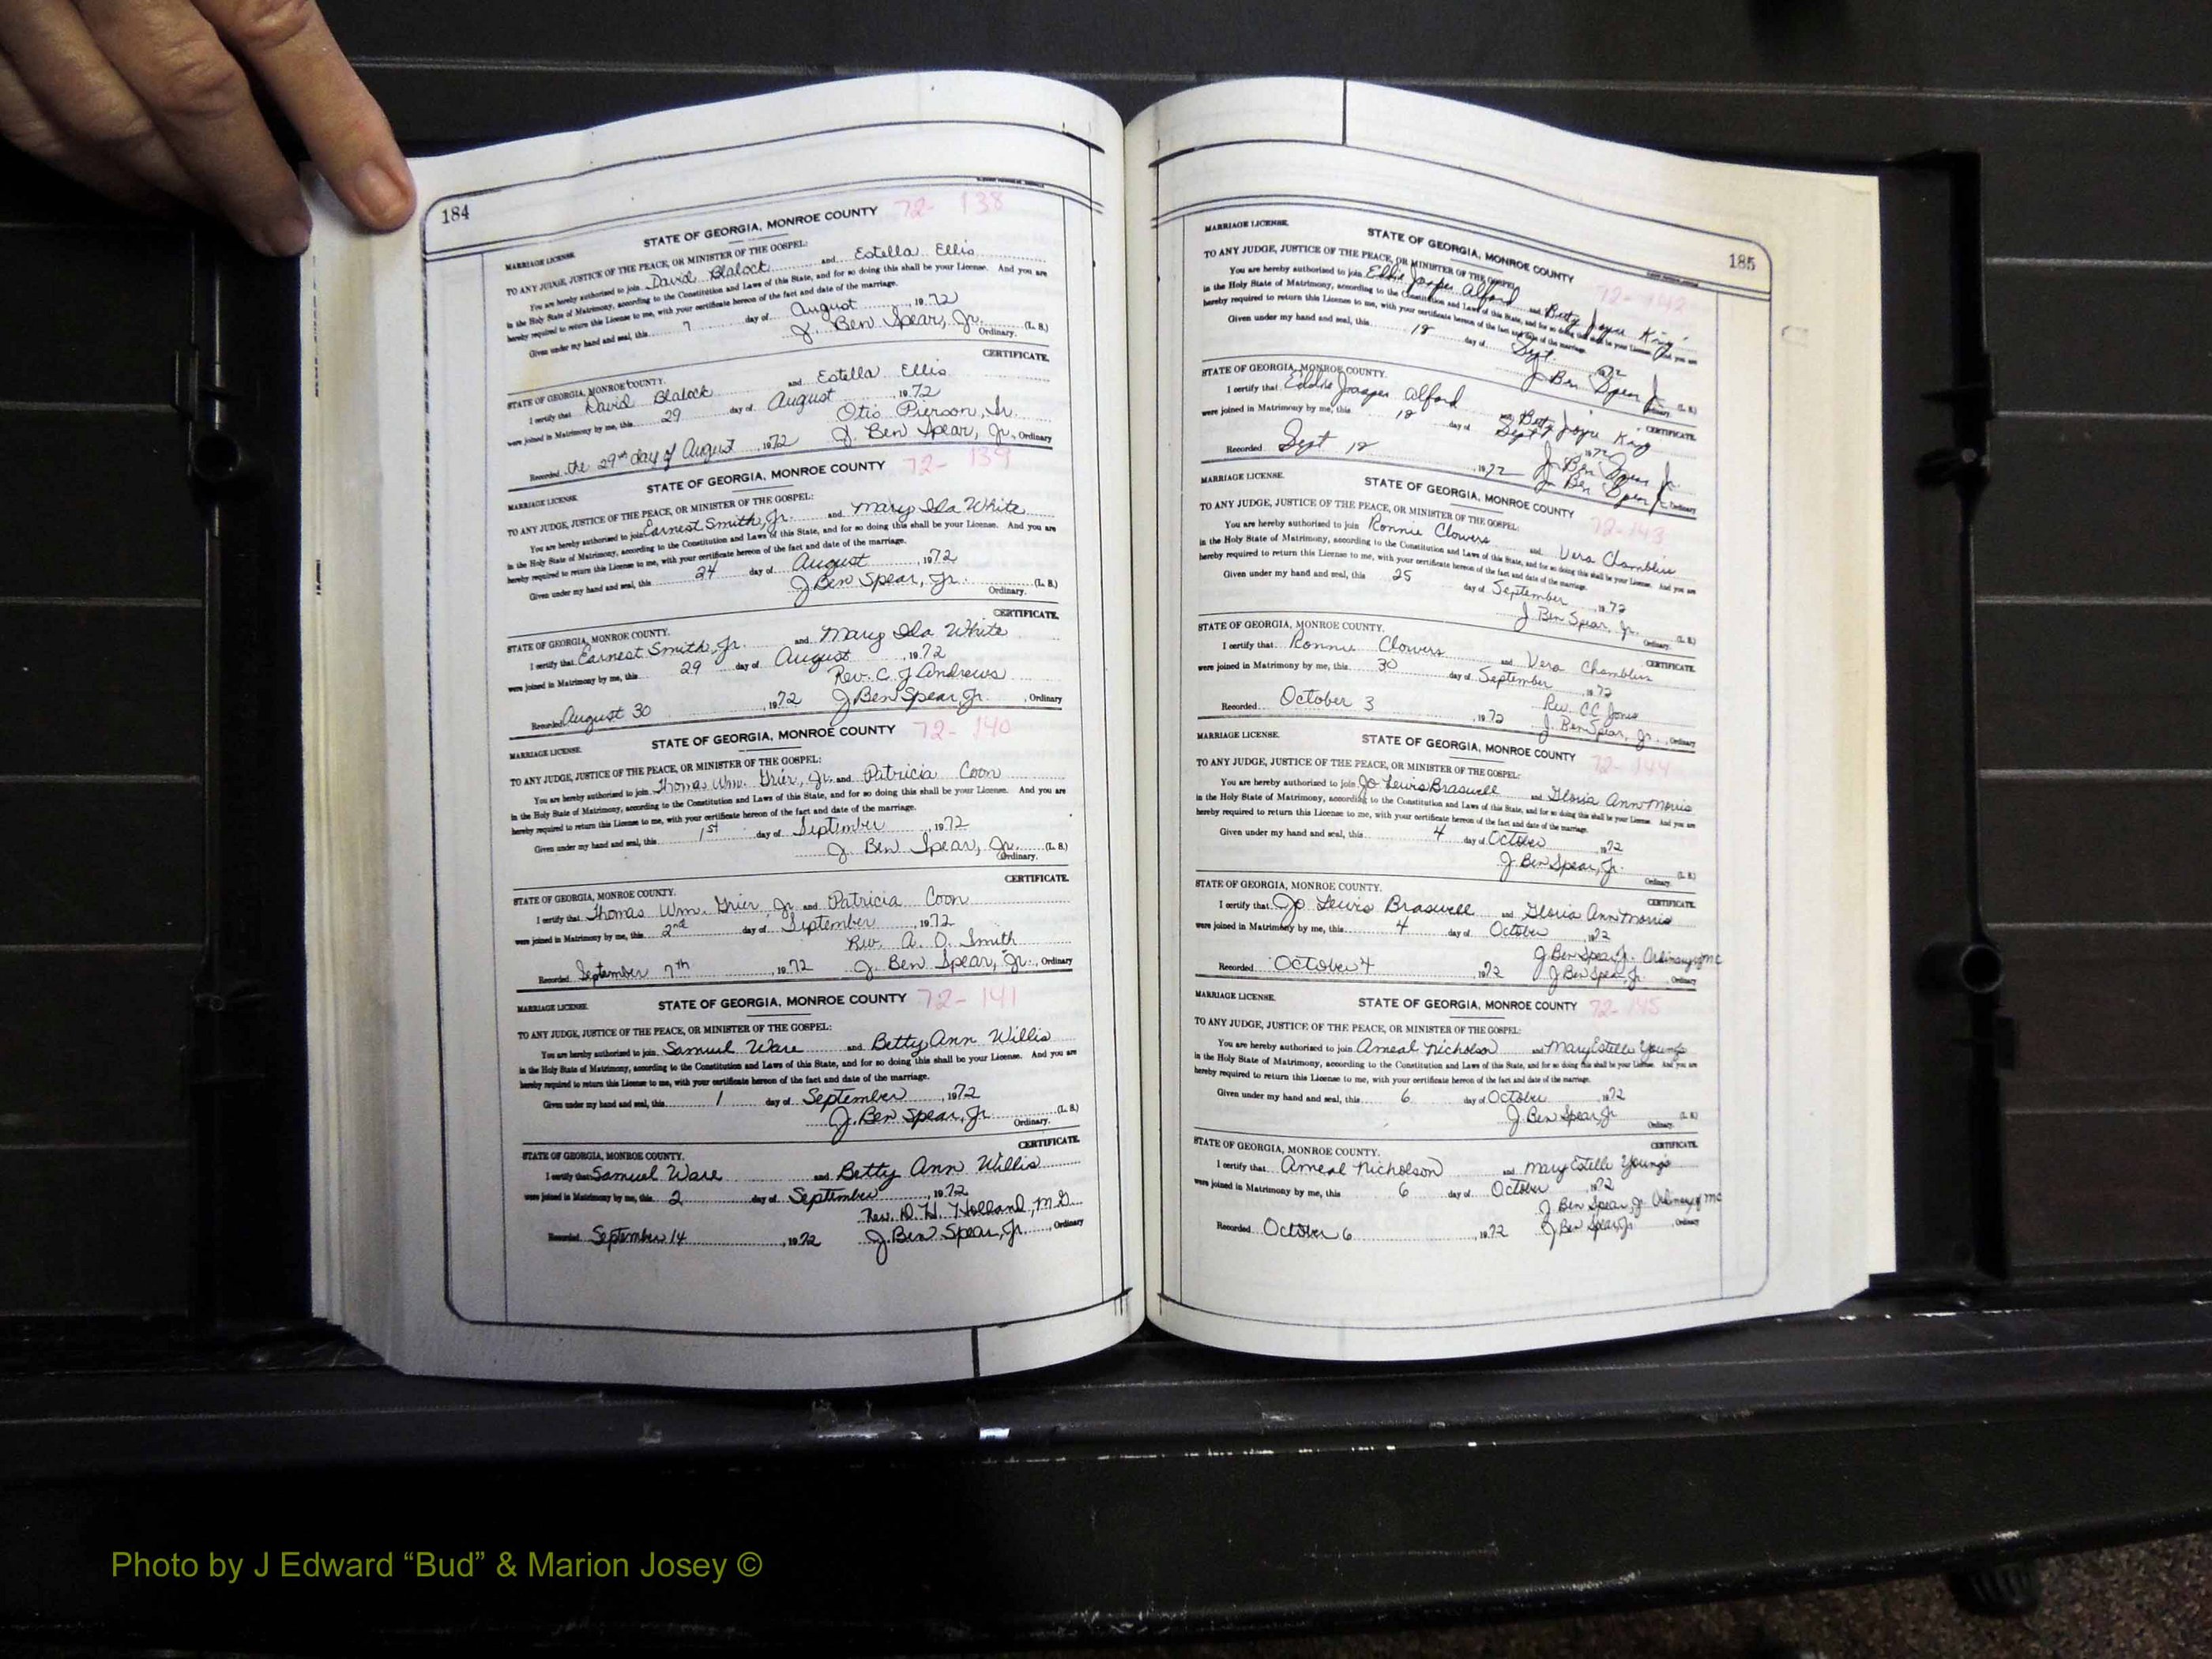 184
STATE OF GEORGIA, MONROE COUNTY 72- 138
MARRIAGE LICENSE.
TO ANY JUDGE, JUSTICE OF THE PEACE, OR MINISTER OF THE GOSPEL:
You are hereby authorized to join David Blalock and Estella Ellis
in the Holy State of Matrimony, according to the Constitution and Laws of this State, and for so doing this shall be your License. And you are
hereby required to return this License to me, with your certificate hereon of the fact and date of the marriage.
Given under my hand and seal, this 7 day of August, 1972
J. Ben Spear, Jr. (L. S.)
Ordinary.
CERTIFICATE.
STATE OF GEORGIA, MONROE COUNTY.
I certify that David Blalock and Estella Ellis
were joined in Matrimony by me, this 29 day of August, 1972
Otis Pierson, Sr.
Recorded the 29th day of August, 1972 J. Ben Spear, Jr., Ordinary
STATE OF GEORGIA, MONROE COUNTY 72- 139
MARRIAGE LICENSE.
TO ANY JUDGE, JUSTICE OF THE PEACE, OR MINISTER OF THE GOSPEL:
You are hereby authorized to join Earnest Smith, Jr. and Mary Ida White
in the Holy State of Matrimony, according to the Constitution and Laws of this State, and for so doing this shall be your License. And you are
hereby required to return this License to me, with your certificate hereon of the fact and date of the marriage.
Given under my hand and seal, this 24 day of August, 1972
J Ben Spear, Jr. (L. S.)
Ordinary.
CERTIFICATE.
STATE OF GEORGIA, MONROE COUNTY.
I certify that Earnest Smith, Jr. and Mary Ida White
were joined in Matrimony by me, this 29 day of August, 1972
Rev. C J Andrews
Recorded August 30, 1972 J Ben Spear, Jr., Ordinary
STATE OF GEORGIA, MONROE COUNTY 72- 140
MARRIAGE LICENSE.
TO ANY JUDGE, JUSTICE OF THE PEACE, OR MINISTER OF THE GOSPEL:
You are hereby authorized to join Thomas Wm. Grier, Jr. and Patricia Coon
in the Holy State of Matrimony, according to the Constitution and Laws of this State, and for so doing this shall be your License. And you are
hereby required to return this License to me, with your certificate hereon of the fact and date of the marriage.
Given under my hand and seal, this 1st day of September, 1972
J. Ben Spear, Jr. (L. S.)
Ordinary.
CERTIFICATE.
STATE OF GEORGIA, MONROE COUNTY.
I certify that Thomas Wm. Grier, Jr and Patricia Coon
were joined in Matrimony by me, this 2nd day of September, 1972
Rev. A. O. Smith
Recorded September 7th, 1972 J. Ben Spear, Jr., Ordinary
STATE OF GEORGIA, MONROE COUNTY 72- 141
MARRIAGE LICENSE.
TO ANY JUDGE, JUSTICE OF THE PEACE, OR MINISTER OF THE GOSPEL:
You are hereby authorized to join Samuel Ware and Betty Ann Willis
in the Holy State of Matrimony, according to the Constitution and Laws of this State, and for so doing this shall be your License. And you are
hereby required to return this License to me, with your certificate hereon of the fact and date of the marriage.
Given under my hand and seal, this 1 day of September, 1972
J. Ben Spear, Jr. (L. S.)
Ordinary.
CERTIFICATE.
STATE OF GEORGIA, MONROE COUNTY.
I certify that Samuel Ware and Betty Ann Willis
were joined in Matrimony by me, this 2 day of September, 1972
Rev. D. H. Holland, M.G.
Recorded September 14, 1972 J. Ben Spear, Jr., Ordinary
185
MARRIAGE LICENSE.
STATE OF GEORGIA, MONROE COUNTY 72- 142
TO ANY JUDGE, JUSTICE OF THE PEACE, OR MINISTER OF THE GOSPEL:
You are hereby authorized to join Eddie Jasper Alford and Betty Joyce King
in the Holy State of Matrimony, according to the Constitution and Laws of this State, and for so doing this shall be your License. And you are
hereby required to return this License to me, with your certificate hereon of the fact and date of the marriage.
Given under my hand and seal, this 18 day of Sept. 1972
J Ben Spear Jr (L. S.)
Ordinary.
STATE OF GEORGIA, MONROE COUNTY.
CERTIFICATE.
I certify that Eddie Jasper Alford and Betty Joyce King
were joined in Matrimony by me, this 18 day of Sept, 1972
J. Ben Spear Jr.
Recorded Sept 18, 1972 J Ben Spear Jr, Ordinary
MARRIAGE LICENSE.
STATE OF GEORGIA, MONROE COUNTY 72-143
TO ANY JUDGE, JUSTICE OF THE PEACE, OR MINISTER OF THE GOSPEL:
You are hereby authorized to join Ronnie Clowers and Vera Chambliss
in the Holy State of Matrimony, according to the Constitution and Laws of this State, and for so doing this shall be your License. And you are
hereby required to return this License to me, with your certificate hereon of the fact and date of the marriage.
Given under my hand and seal, this 25 day of September, 1972
J Ben Spear, Jr. (L. S.)
Ordinary.
STATE OF GEORGIA, MONROE COUNTY.
CERTIFICATE.
I certify that Ronnie Clowers and Vera Chambliss
were joined in Matrimony by me, this 30 day of September, 1972
Rev. CC Jones
Recorded October 3, 1972 J. Ben Spear, Jr., Ordinary
MARRIAGE LICENSE.
STATE OF GEORGIA, MONROE COUNTY 72-144
TO ANY JUDGE, JUSTICE OF THE PEACE, OR MINISTER OF THE GOSPEL:
You are hereby authorized to join Jo Lewis Braswell and Gloria Ann Morris
in the Holy State of Matrimony, according to the Constitution and Laws of this State, and for so doing this shall be your License. And you are
hereby required to return this License to me, with your certificate hereon of the fact and date of the marriage.
Given under my hand and seal, this 4 day of October, 1972
J. Ben Spear, Jr. (L. S.)
Ordinary.
STATE OF GEORGIA, MONROE COUNTY.
CERTIFICATE.
I certify that Jo Lewis Braswell and Gloria Ann Morris
were joined in Matrimony by me, this 4 day of October, 1972
J Ben Spear, Jr. Ordinary of MC
Recorded October 4, 1972 J Ben Spear, Jr., Ordinary
MARRIAGE LICENSE.
STATE OF GEORGIA, MONROE COUNTY 72-145
TO ANY JUDGE, JUSTICE OF THE PEACE, OR MINISTER OF THE GOSPEL:
You are hereby authorized to join Ameal Nicholson and Mary Estelle Youngs
in the Holy State of Matrimony, according to the Constitution and Laws of this State, and for so doing this shall be your License. And you are
hereby required to return this License to me, with your certificate hereon of the fact and date of the marriage.
Given under my hand and seal, this 6 day of October, 1972
J Ben Spear, Jr (L. S.)
Ordinary.
STATE OF GEORGIA, MONROE COUNTY.
CERTIFICATE.
I certify that Ameal Nicholson and Mary Estelle Youngs
were joined in Matrimony by me, this 6 day of October, 1972
J Ben Spear, Jr Ordinary of MC
Recorded October 6, 1972 J Ben Spear, Jr, Ordinary
Photo by J Edward “Bud” & Marion Josey ©